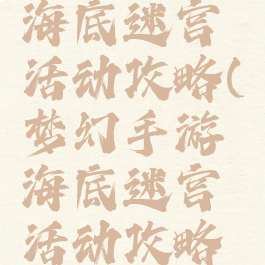 海底迷宫
活动攻略(
梦幻手游
海底迷宫
活动攻略